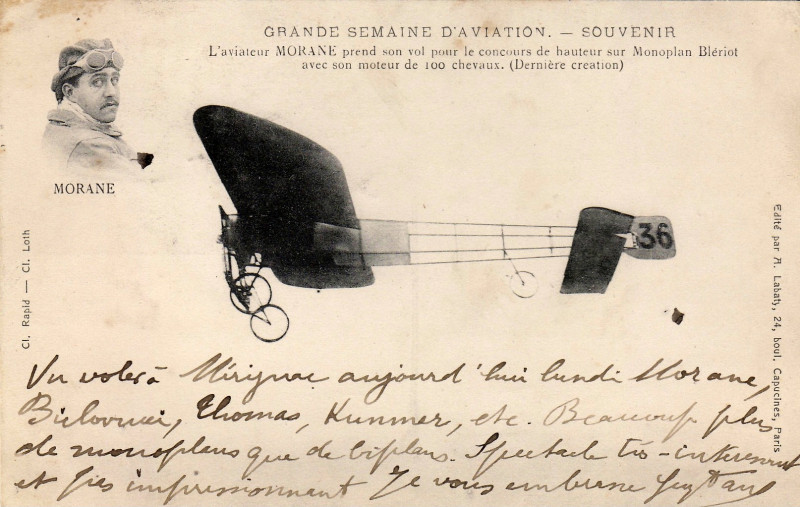 GRANDE SEMAINE D'AVIATION. — SOUVENIR
L'aviateur MORANE prend son vol pour le concours de hauteur sur Monoplan Blériot
avec son moteur de 100 chevaux. (Dernière creation)
MORANE
36
Cl. Rapid — Cl. Loth
Edité par A. Labaty, 24, boul. Capucines, Paris
Vu voler à Mérignac aujourd'hui lundi Morane,
Thomas, Kunmer, etc. Beaucoup plus
de monoplans que de biplans. Spectacle très-interessant
et très impressionnant Je vous embrasse